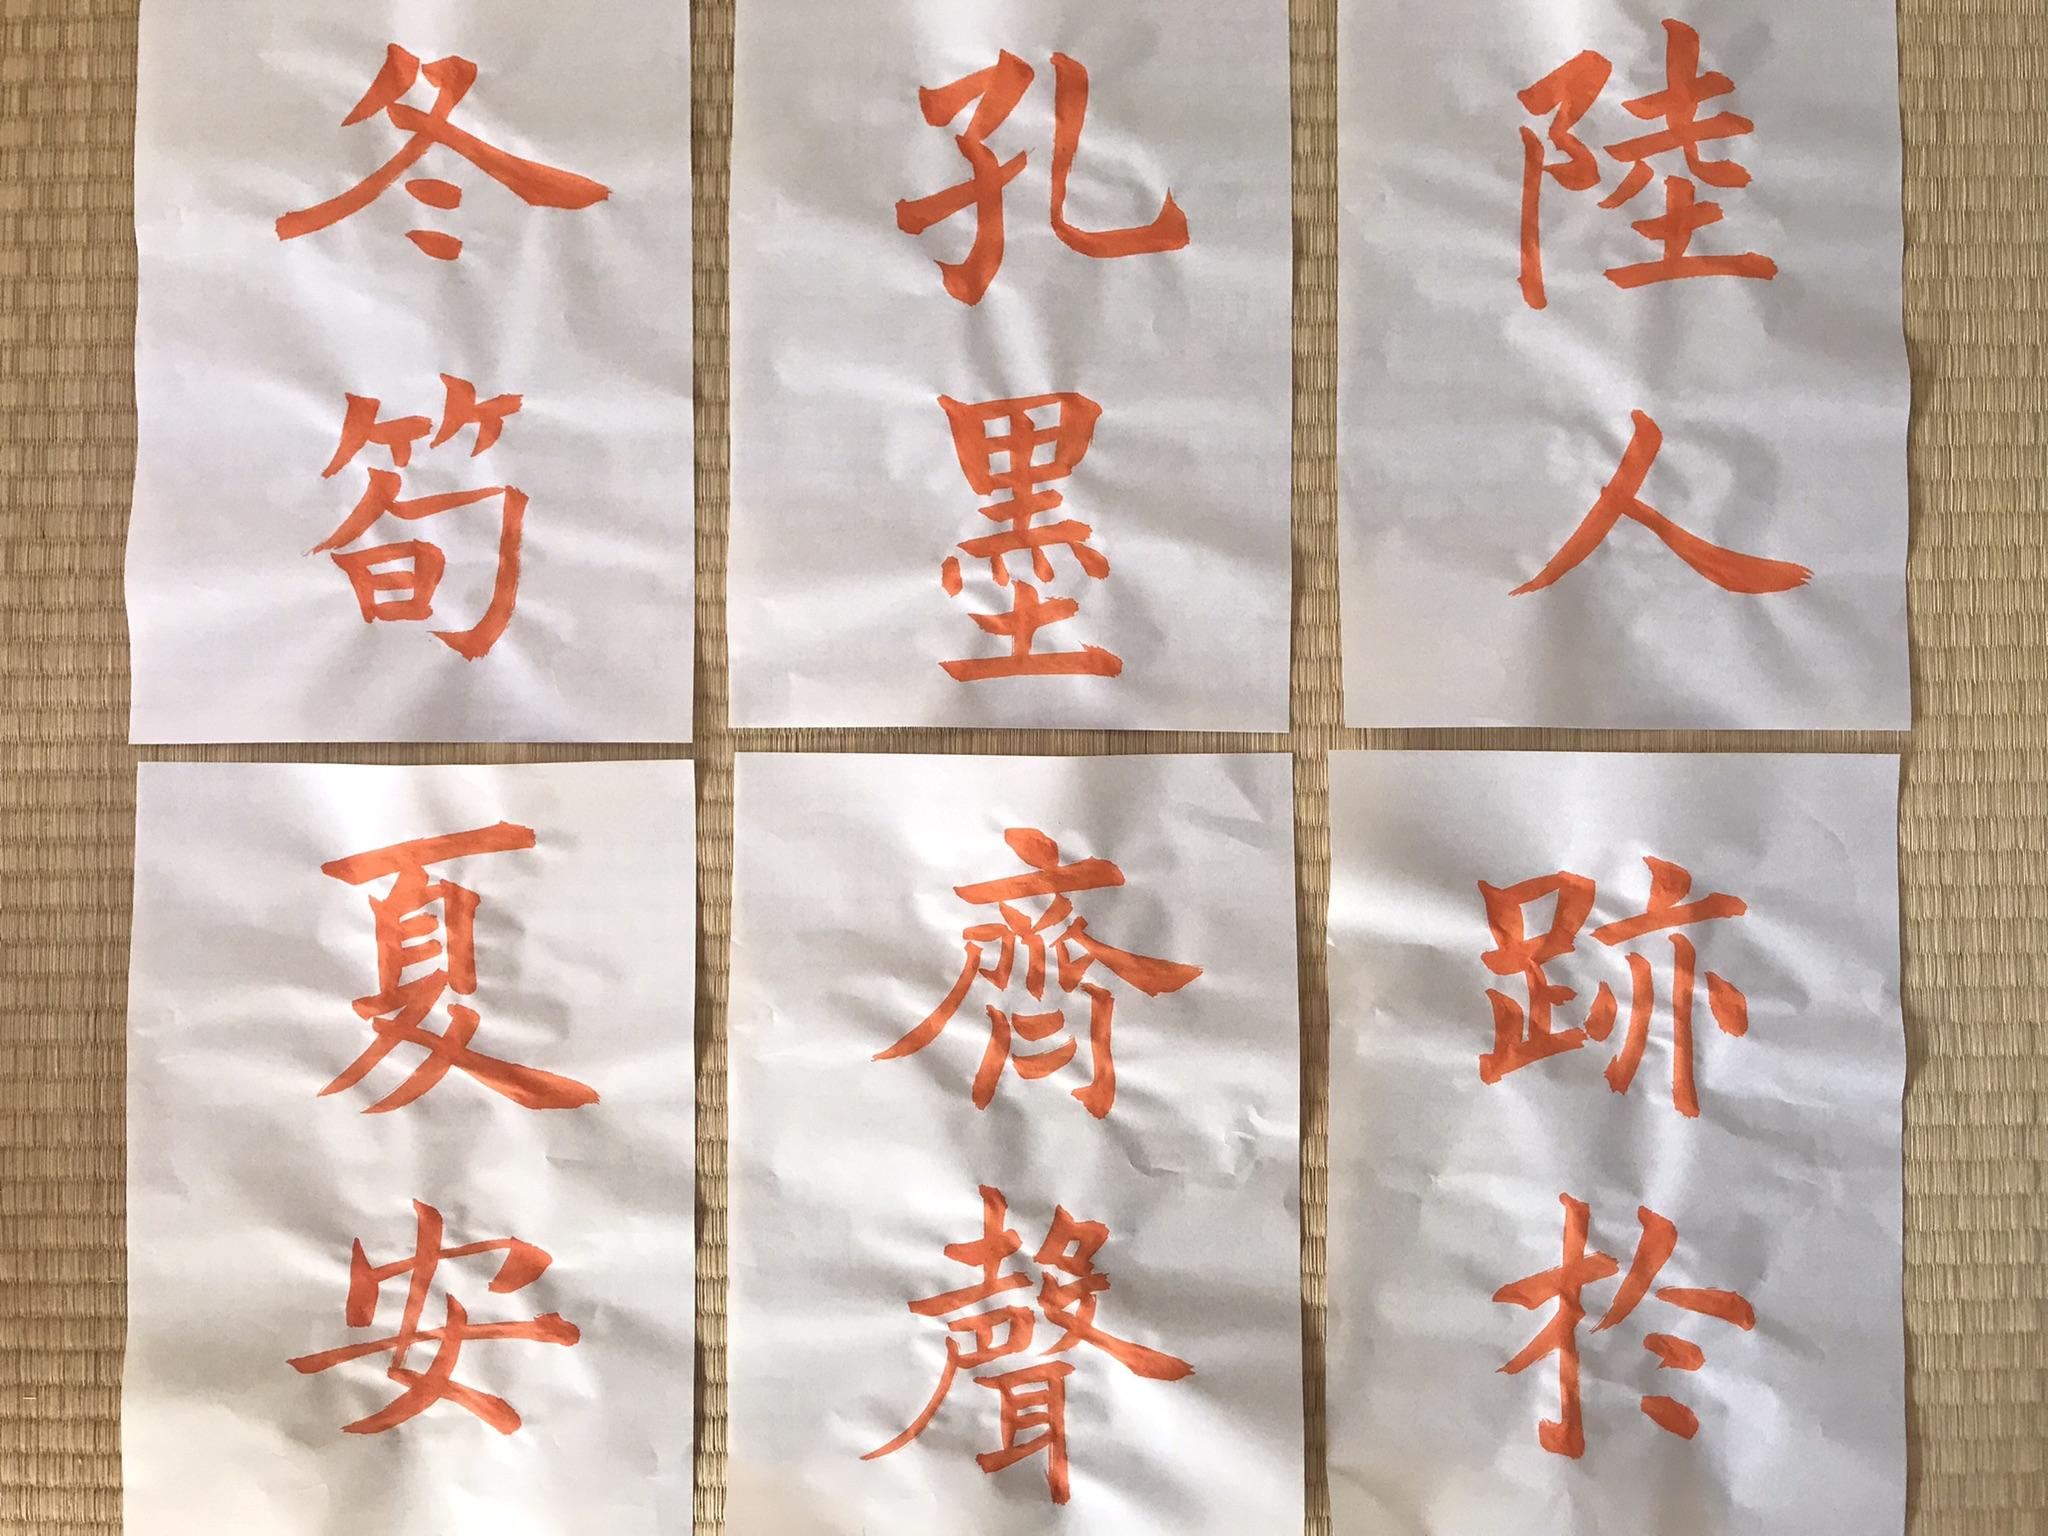 陸人
跡於
孔墨
齊聲
冬筍
夏安